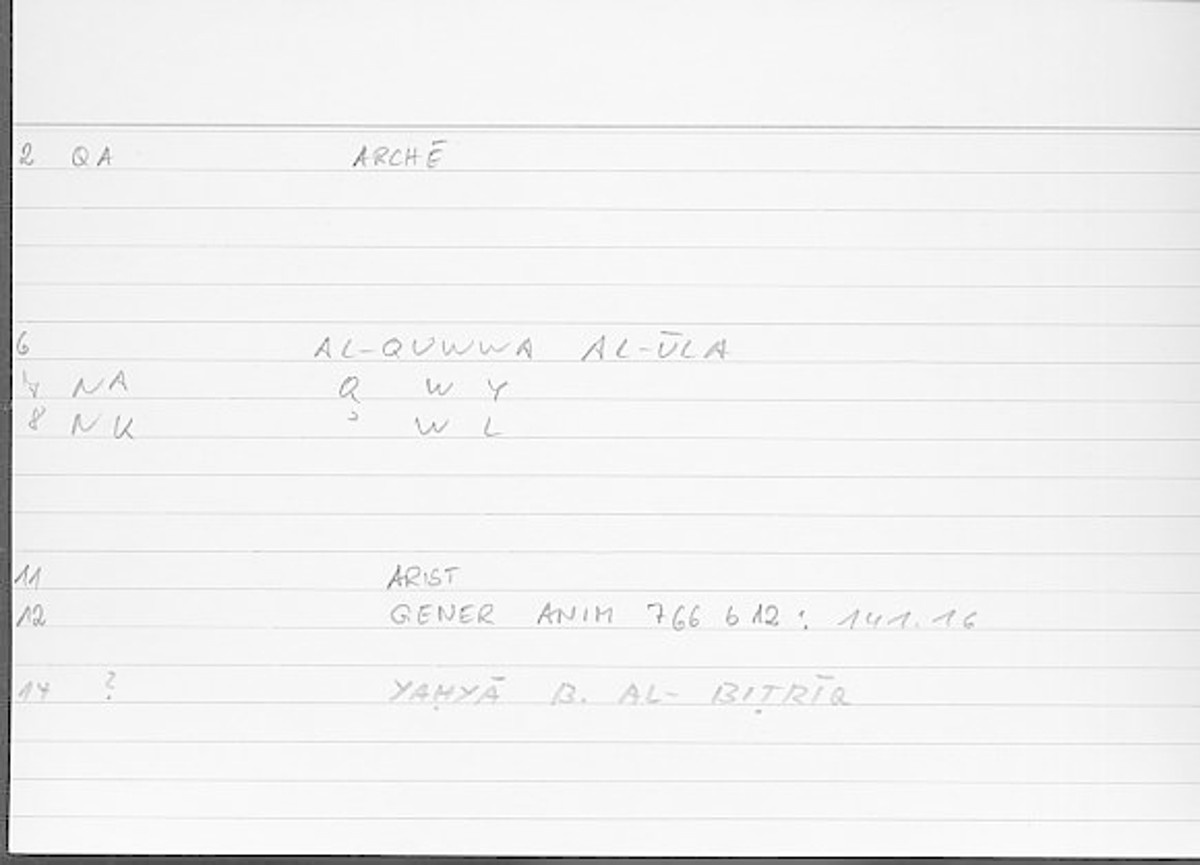 2 QA ARCHĒ
6 AL-QUWWA AL-ŪLA
7 NA Q W Y
8 NK ʾ W L
11 ARIST
12 GENER ANIM 766 b 12 : 141.16
14 ? YAḤYĀ B. AL- BIṬRĪQ